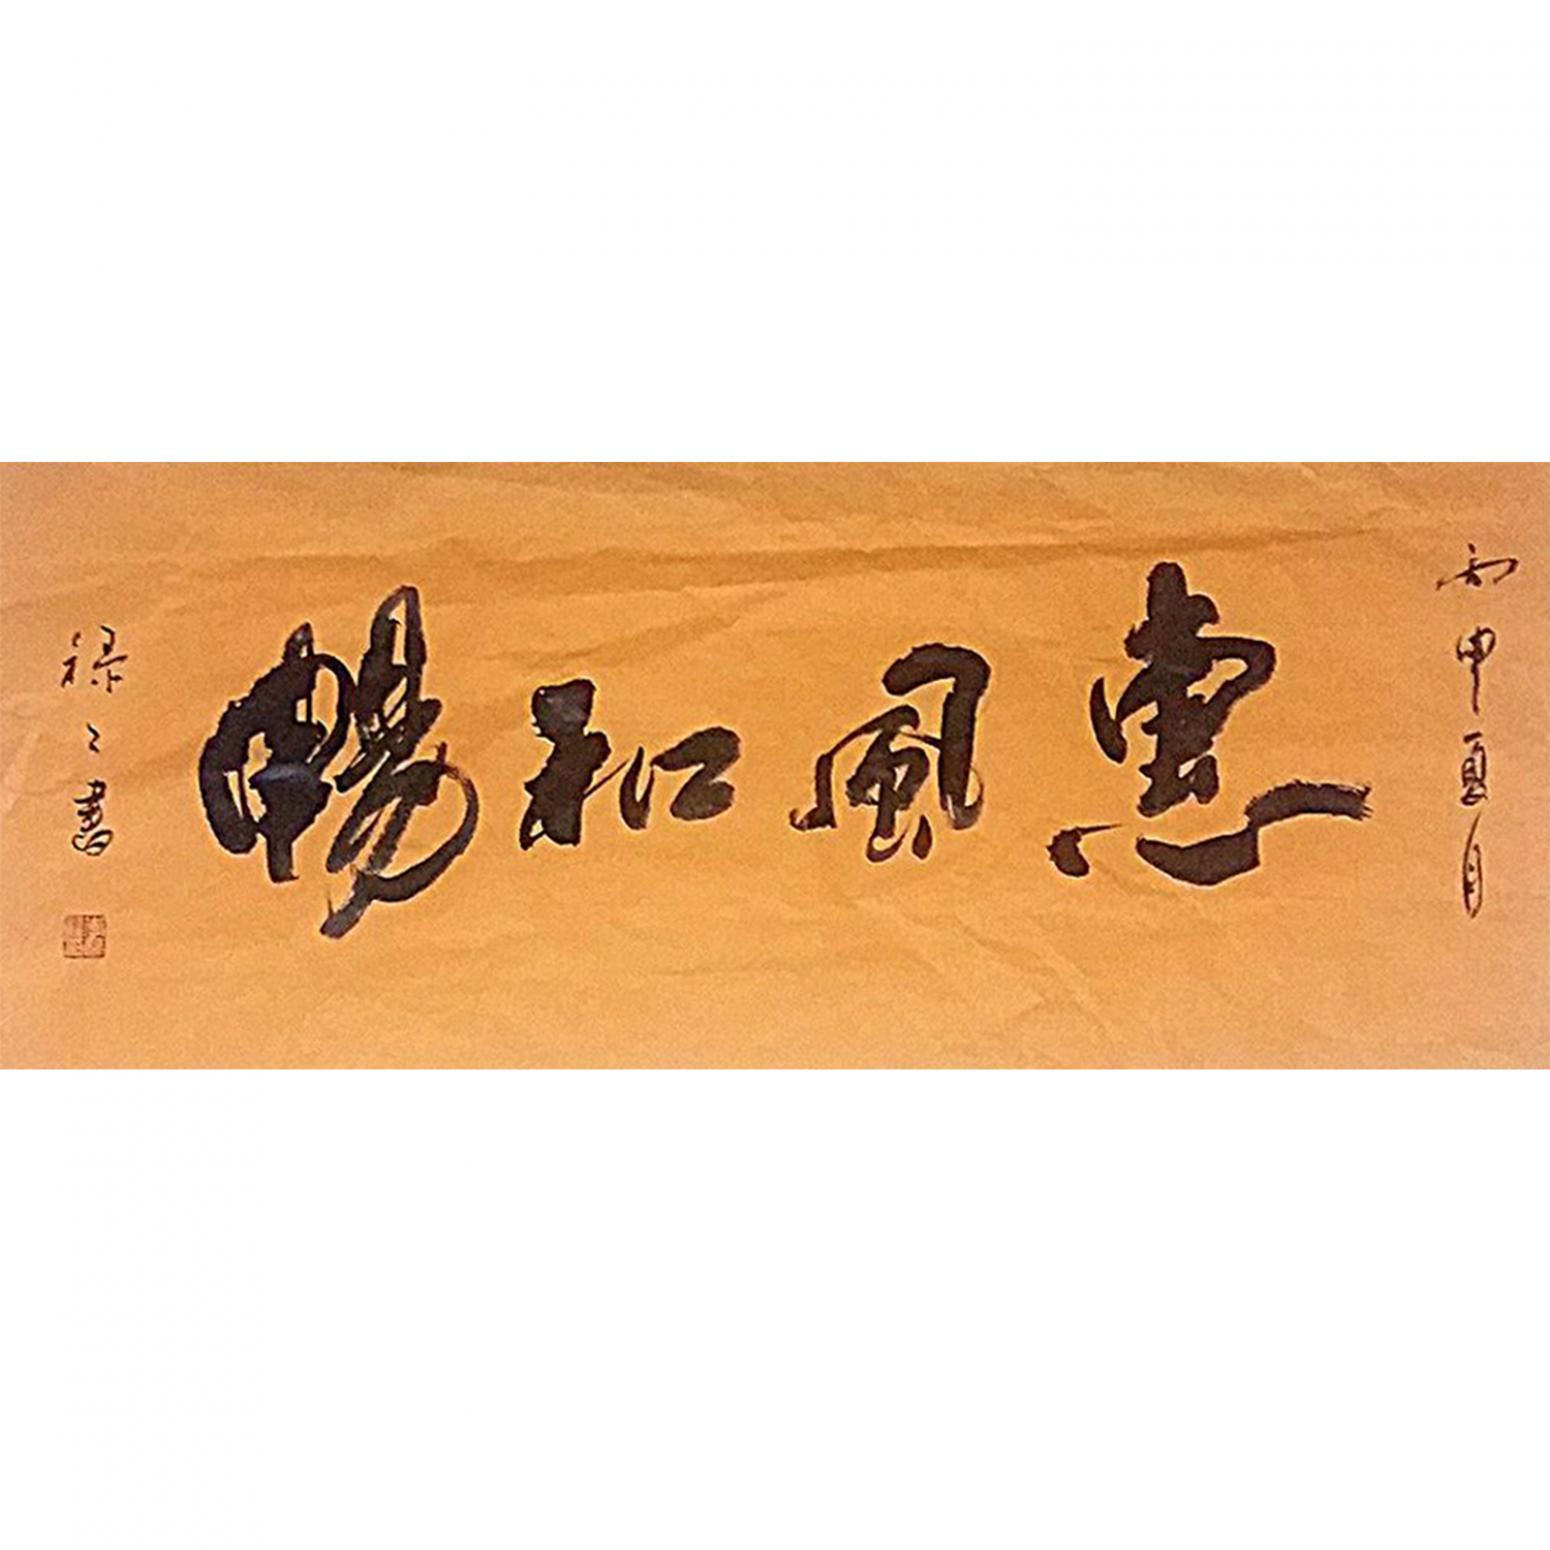 丙申夏月
惠風和暢
禄之書